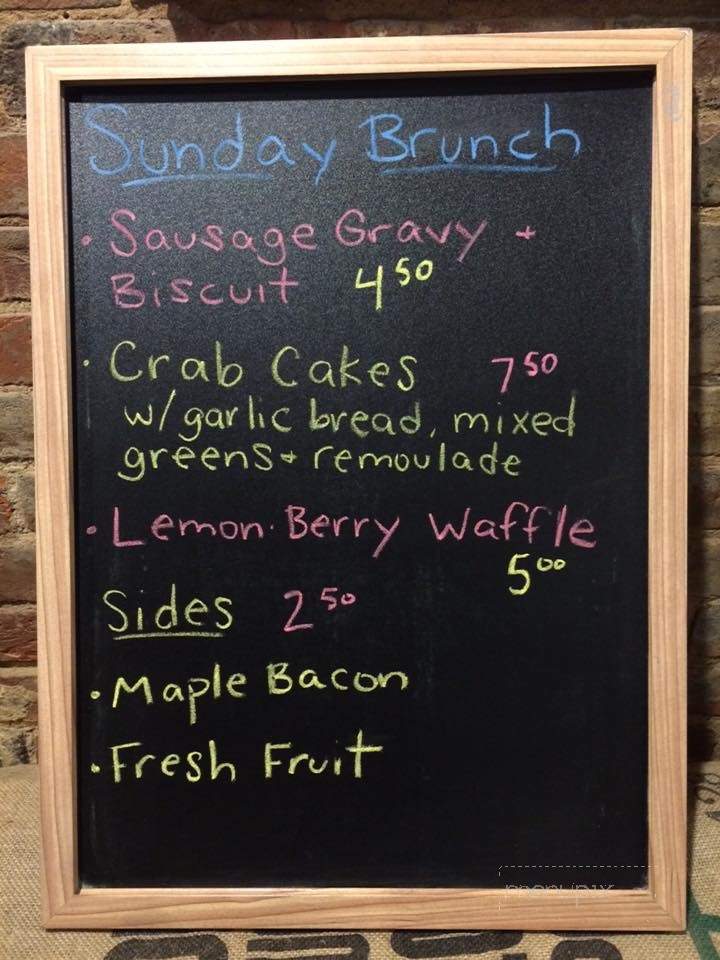 Sunday Brunch
• Sausage Gravy +
Biscuit 4⁵⁰
• Crab Cakes 7⁵⁰
w/garlic bread, mixed
greens + remoulade
• Lemon·Berry Waffle
5⁰⁰
Sides 2⁵⁰
• Maple Bacon
• Fresh Fruit
menupix